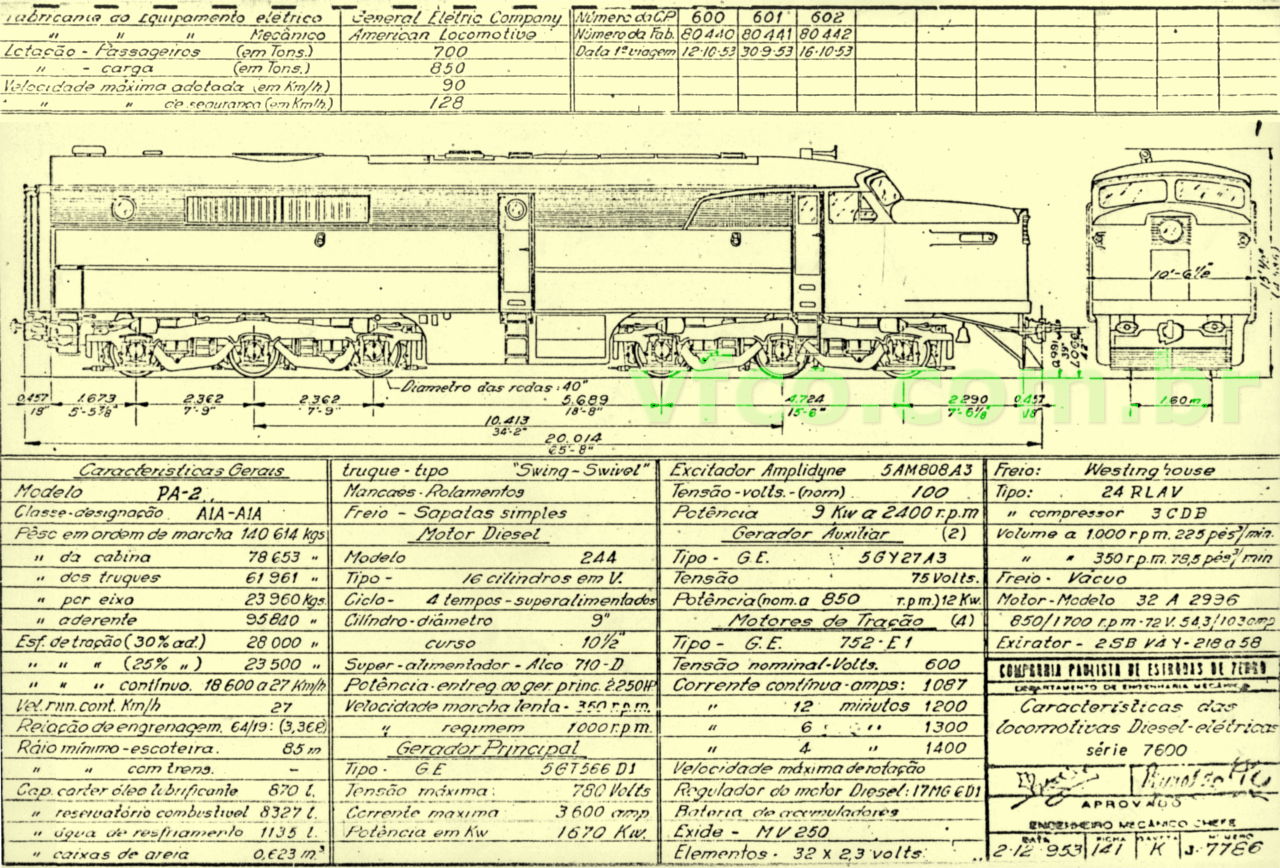 Fabricante do Equipamento elétrico General Elétric Company
" " " Mecânico American Locomotive
Lotação - Passageiros (em Tons.) 700
" - carga (em Tons.) 850
Velocidade máxima adotada (em Km/h) 90
" " de segurança (em Km/h) 128
Número da C.P. 600 601 602
Número da Fab. 80440 80441 80442
Data 1ª viagem 12-10-53 30-9-53 16-10-53
1
10'-6½"
Diametro das rodas: 40"
0,457 1.673 2.362 2.362 5.689 4.724 2.290 0.457 1.60m
18" 5'-5⅞" 7'-9" 7'-9" 18'-8" 15'-6" 7'-6⅛" 18"
10.413
34'-2"
20.014
65'-8"
vfco.com.br
Caracteristicas Gerais
Modelo PA-2
Classe-designação A1A-A1A
Pêso em ordem de marcha 140 614 kgs
" da cabina 78 653 "
" dos truques 61 961 "
" por eixo 23 960 kgs
" aderente 95840 "
Esf. de tração (30% ad.) 28 000 "
" " " (25% ") 23 500 "
" " " contínuo. 18 600 a 27 Km/h
Vel. min. cont. Km/h 27
Relação de engrenagem 64/19: (3,368)
Ráio mínimo - escoteira. 85 m
" " com trens. -
Cap. carter óleo lubrificante 870 l.
" reservatório combustivel 8327 l.
" água de resfriamento 1135 l.
" caixas de areia 0,623 m³
truque - tipo "Swing-Swivel"
Mancaes - Rolamentos
Freio - Sapatas simples
Motor Diesel
Modelo 244
Tipo - 16 cilindros em V.
Ciclo - 4 tempos - superalimentados
Cilindro - diâmetro 9"
curso 10½"
Super-alimentador - Alco 710-D
Potência entreg ao ger. princ. 2250HP
Velocidade marcha lenta - 350 r.p.m.
" regimem 1000 r.p.m.
Gerador Principal
Tipo - GE 5GT566 D1
Tensão máxima: 780 Volts
Corrente maxima 3600 amp.
Potência em Kw 1670 Kw.
Excitador Amplidyne 5AM808A3
Tensão - volts. - (nom) 100
Potência 9 Kw a 2400 r.p.m
Gerador Auxiliar (2)
Tipo - G.E. 5GY27A3
Tensão 75 Volts.
Potência (nom. a 850 r.p.m.) 12 Kw.
Motores de Tração (4)
Tipo - G.E. 752-E1
Tensão nominal-Volts. 600
Corrente contínua-amps: 1087
" 12 minutos 1200
" 6 " 1300
" 4 " 1400
Velocidade máxima de rotação
Regulador do motor Diesel: 17MG6D1
Bateria de acumuladores
Exide - MV 250
Elementos - 32 x 2,3 volts.
Freio: Westinghouse
Tipo: 24 RLAV
" compressor 3 CDB
Volume a 1.000 r.p.m. 225 pés³/min.
" " 350 r.p.m. 78,5 pés³/min
Freio - Vácuo
Motor-Modelo 32 A 2996
850/1700 r.p.m-72 V. 54,3/103 amp
Exirator - 2SB V4Y-218 a 58
COMPANHIA PAULISTA DE ESTRADAS DE FERRO
DEPARTAMENTO DE ENGENHARIA MECÂNICA
Caracteristicas das
locomotivas Diesel-elétricas
série 7600
APROVADO
ENGENHEIRO MECÂNICO CHEFE
DATA FICHA GAVETA NUMERO
2-12-953 141 K J-7786